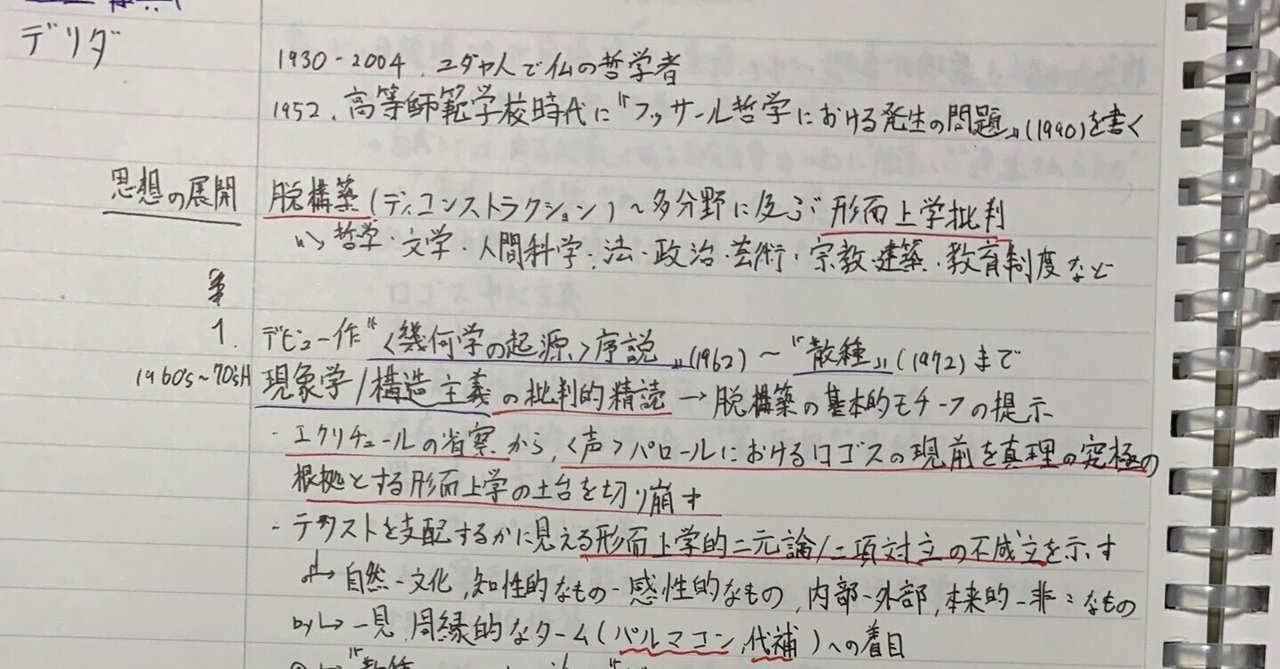 デリダ
1930-2004. ユダヤ人で仏の哲学者
1952. 高等師範学校時代に『フッサール哲学における発生の問題』(1990)を書く
思想の展開 脱構築(ディコンストラクション)~多分野に及ぶ形而上学批判
哲学・文学・人間科学・法・政治・芸術・宗教・建築・教育制度など
1. デビュー作『〈幾何学の起源〉序説』(1962)~『散種』(1972)まで
1960's~70's 現象学/構造主義の批判的精読→脱構築の基本的モチーフの提示
・エクリチュールの省察から、〈声〉パロールにおけるロゴスの現前を真理の究極の
根拠とする形而上学の土台を切り崩す
・テクストを支配するかに見える形而上学的二元論/二項対立の不成立を示す
↳ 自然-文化, 知性的なもの-感性的なもの, 内部-外部, 本来的-非〃なもの
by↳ 一見、周縁的なターム(パルマコン,代補)への着目